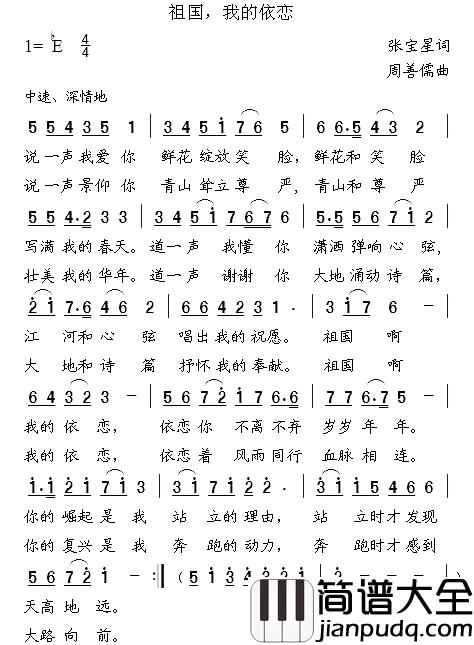 祖国，我的依恋
1=♭E 4/4 张宝星词
周善儒曲
中速、深情地
5 5 4 3 5 1 | 3 4 5 1 7 6 5 | 6 6·5 4 3 2 |
说一声我爱你 鲜花绽放笑脸，鲜花和笑脸
说一声景仰你 青山耸立尊严，青山和尊严
5 5 4·2 3 3 | 3 4 5 1 7 6 7 6 | 5·5 5 1 7 6 5 |
写满我的春天。道一声我懂你 潇洒弹响心弦，
壮美我的华年。道一声谢谢你 大地涌动诗篇，
2 1 7·6 4 6 2 | 6 6 4 2 3 1· | 3 1 7 6 |
江河和心弦 唱出我的祝愿。 祖国啊
大地和诗篇 抒怀我的奉献。 祖国啊
6 4 3 2 3 － | 5 6 7 2 1 7 6·6 | 7 2 6·7 5 － |
我的依恋， 依恋你不离不弃 岁岁年年。
我的依恋， 依恋着风雨同行 血脉相连。
1·1 2 1 7 1 3 | 5 5 6 2 1 2 | 3·1 1 5 4 6 6 |
你的崛起是我 站立的理由， 站立时才发现
你的复兴是我 奔跑的动力， 奔跑时才感到
5 6 7 2 1 － :‖
天高地远。
大路向前。
简谱大全
jianpudq.com